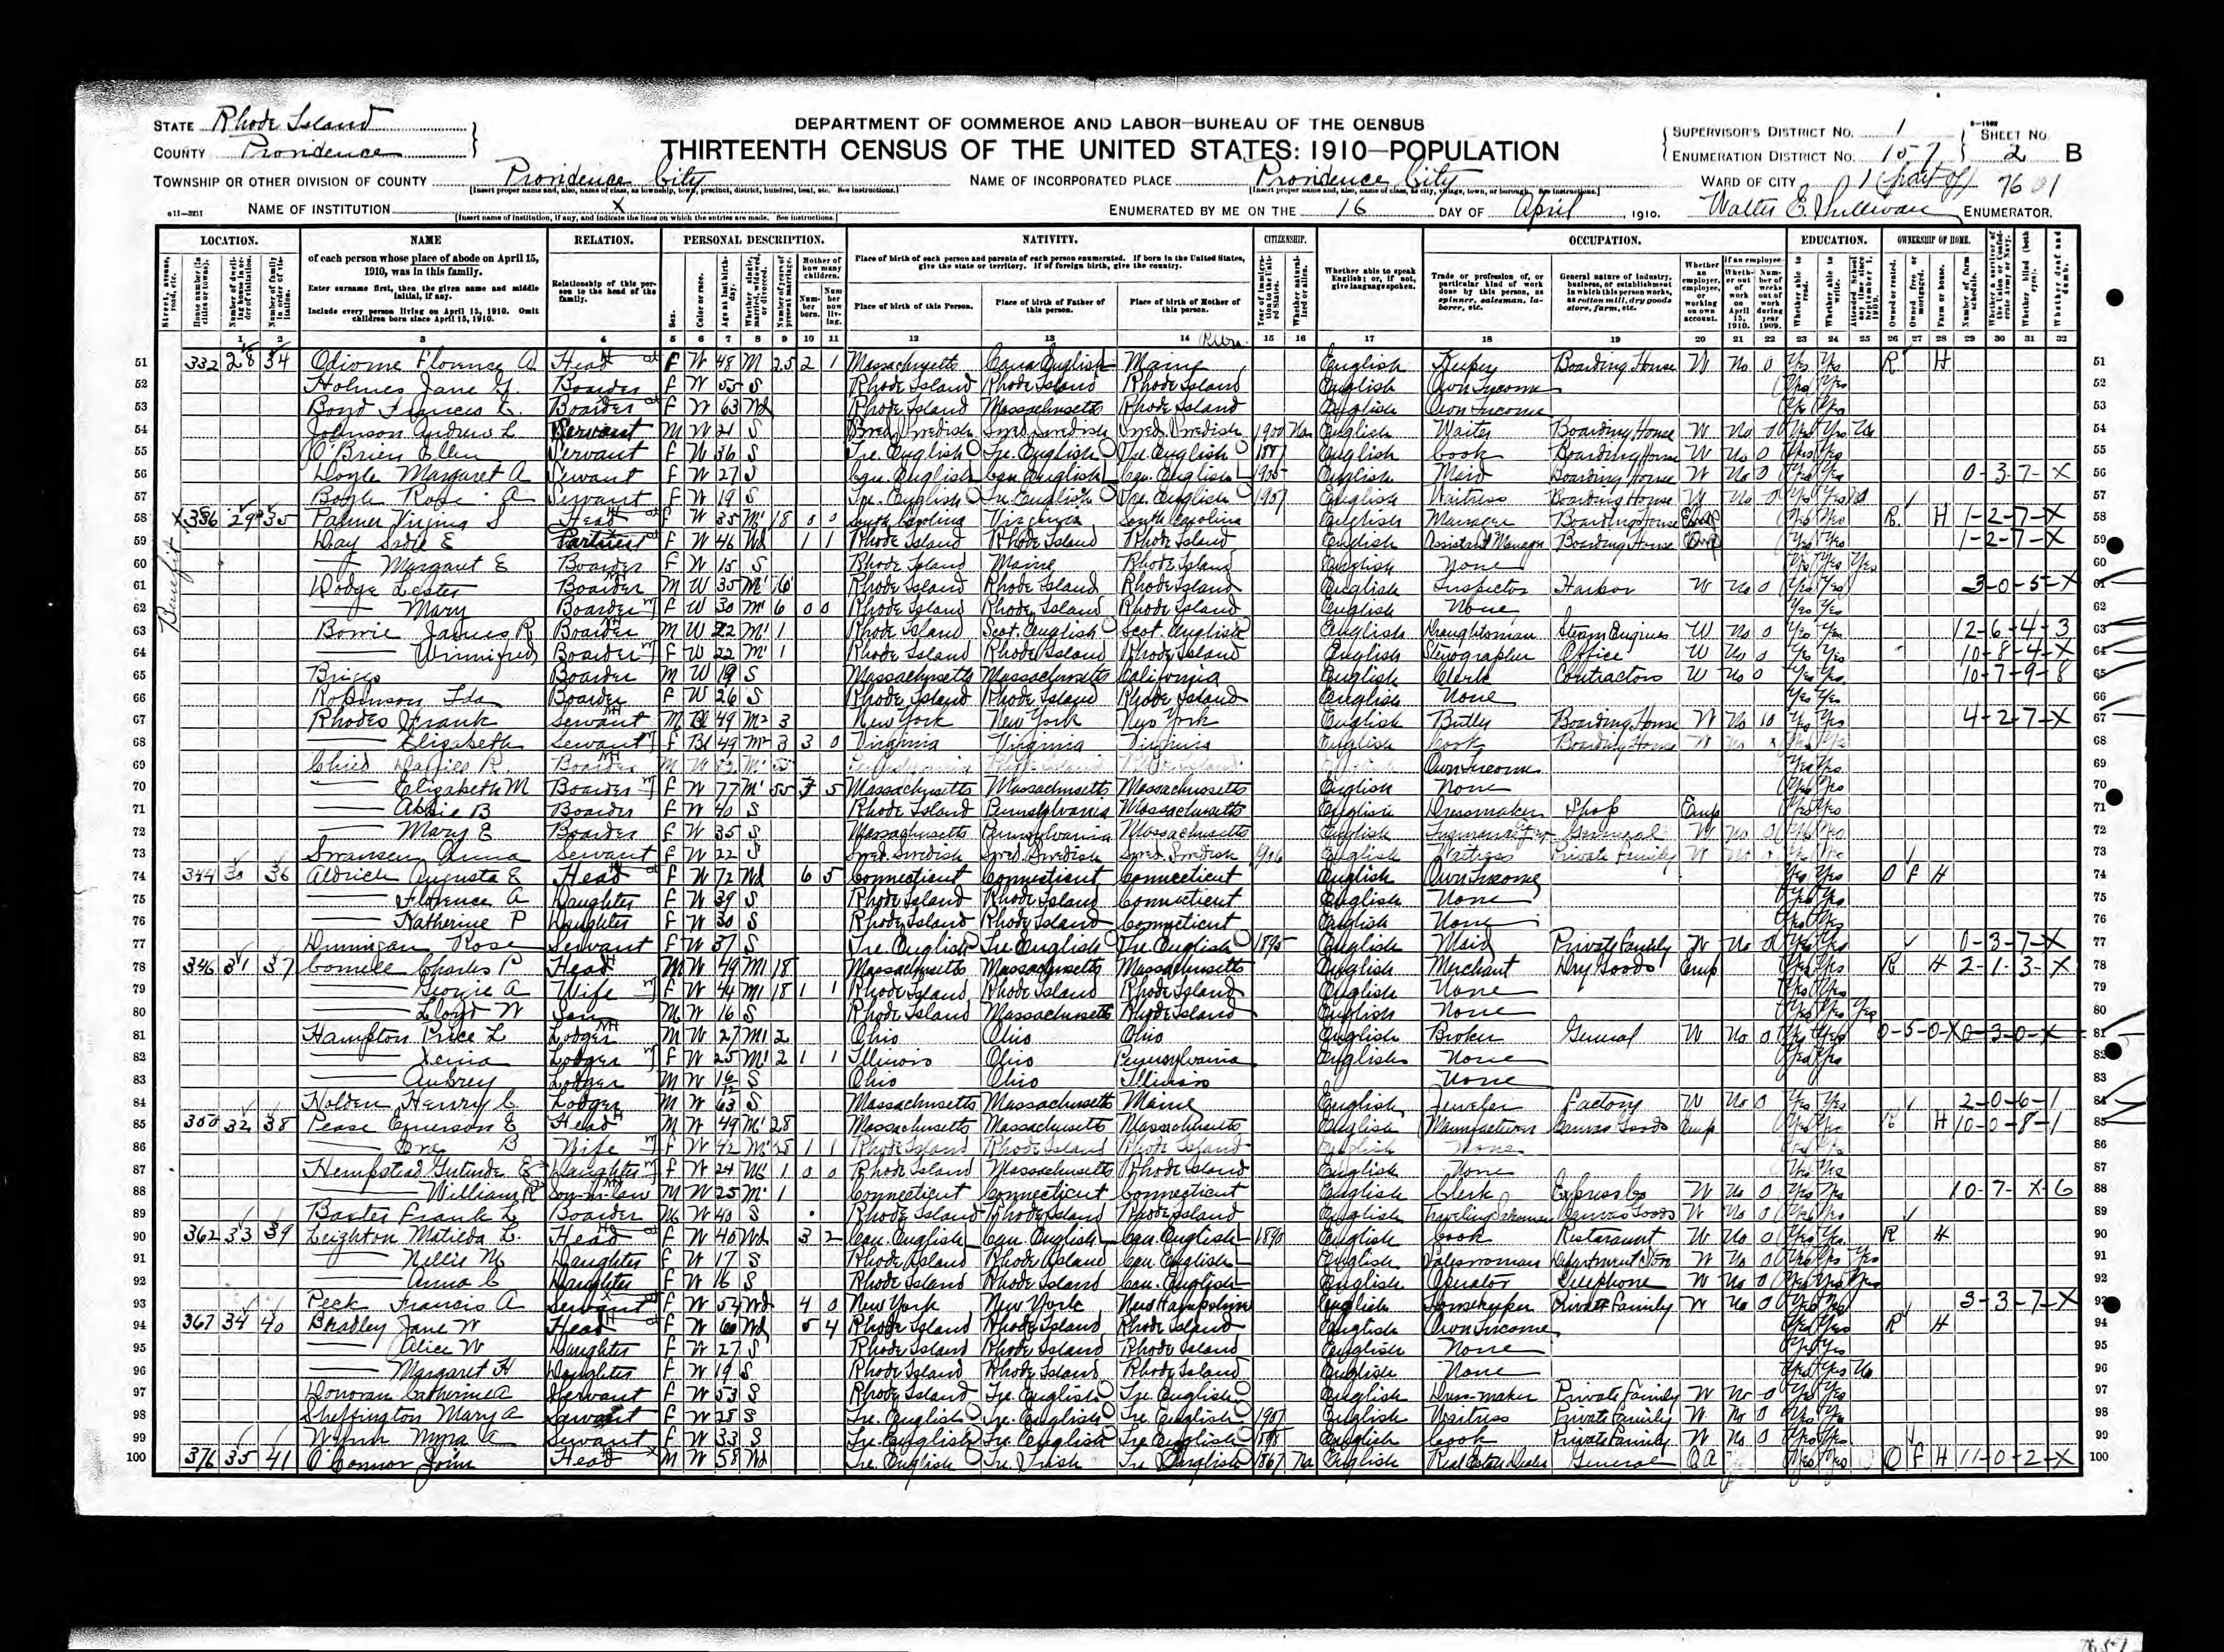 STATE Rhode Island
COUNTY Providence
DEPARTMENT OF COMMERCE AND LABOR—BUREAU OF THE CENSUS
THIRTEENTH CENSUS OF THE UNITED STATES: 1910—POPULATION
SUPERVISOR'S DISTRICT No. 1
ENUMERATION DISTRICT No. 157
SHEET No. 2 B
TOWNSHIP OR OTHER DIVISION OF COUNTY Providence City
NAME OF INCORPORATED PLACE Providence City
WARD OF CITY 1 (part of) 7601
NAME OF INSTITUTION X
ENUMERATED BY ME ON THE 16 DAY OF April, 1910. Walter E. Sullivan ENUMERATOR.
LOCATION. NAME RELATION. PERSONAL DESCRIPTION. NATIVITY. CITIZENSHIP. OCCUPATION. EDUCATION. OWNERSHIP OF HOME.
of each person whose place of abode on April 15, 1910, was in this family.
Enter surname first, then the given name and middle initial, if any.
Include every person living on April 15, 1910. Omit children born since April 15, 1910.
Relationship of this person to the head of the family.
Place of birth of each person and parents of each person enumerated. If born in the United States, give the state or territory. If of foreign birth, give the country.
Place of birth of this Person. Place of birth of Father of this person. Place of birth of Mother of this person.
Whether able to speak English; or, if not, give language spoken.
Trade or profession of, or particular kind of work done by this person, as spinner, salesman, laborer, etc.
General nature of industry, business, or establishment in which this person works, as cotton mill, dry goods store, farm, etc.
51 332 28 34 Florence A Head F W 48 M 25 2 1 Massachusetts Maine English Boarding House W No 0 Yes Yes R H
52 Holmes Jane Boarder F W 55 S Rhode Island Rhode Island Rhode Island English Own Income Yes Yes
53 Boyd Frances E. Boarder F W 63 Wd Rhode Island Massachusetts Rhode Island English Own Income Yes Yes
54 Johnson Andrew L Servant M W 21 S Swed. Swedish Swed. Swedish Swed. Swedish 1900 Na English Waiter Boarding House W No 0 Yes Yes
55 O'Brien Ellen Servant F W 36 S Ire. English Ire. English Ire. English English Cook Boarding House W No 0 Yes Yes
56 Doyle Margaret A Servant F W 27 S Can. English Can. English Can. English 1905 English Maid Boarding House W No 0 Yes Yes 0-3-7-X
57 Boyle Rose A Servant F W 19 S Ire. English Ire. English Ire. English 1907 English Waitress Boarding House W No 0 Yes Yes
58 336 29 35 Palmer Head F W 35 M1 18 0 0 South Carolina Virginia South Carolina English Manager Boarding House Emp Yes Yes R H 1-2-7-X
59 Day Sadie E Partner F W 46 Wd 1 1 Rhode Island Rhode Island Rhode Island English Assistant Manager Boarding House Emp Yes Yes 1-2-7-X
60 Margaret E Boarder F W 15 S Rhode Island Maine Rhode Island English None Yes Yes Yes
61 Dodge Lester Boarder M W 35 M1 6 Rhode Island Rhode Island Rhode Island English Inspector Harbor W No 0 Yes Yes 3-0-5-X
62 Mary Boarder F W 30 M1 6 0 0 Rhode Island Rhode Island Rhode Island English None Yes Yes
63 Bowie James R Boarder M W 22 M1 1 Rhode Island Scot. English Scot. English English Draughtsman Steam Engines W No 0 Yes Yes 12-6-4-3
64 Winnifred Boarder F W 22 M1 1 Rhode Island Rhode Island Rhode Island English Stenographer Office W No 0 Yes Yes 10-8-4-X
65 Briggs Boarder M W 19 S Massachusetts Massachusetts California English Clerk Contractors W No 0 Yes Yes 10-7-9-8
66 Robinson Ida Boarder F W 26 S Rhode Island Rhode Island Rhode Island English None Yes Yes
67 Rhodes Frank Servant M Bl 49 M2 3 New York New York New York English Butler Boarding House W No 10 Yes Yes 4-2-7-X
68 Elizabeth Servant F Bl 49 M2 3 3 0 Virginia Virginia Virginia English Cook Boarding House W No
69 Boarder M W Own Income Yes Yes
70 Elizabeth M Boarder F W 77 M1 55 7 5 Massachusetts Massachusetts Massachusetts English None Yes Yes
71 Abbie B Boarder F W 40 S Rhode Island Pennsylvania Massachusetts English Dressmaker Shop Emp Yes Yes
72 Mary E Boarder F W 35 S Massachusetts Pennsylvania Massachusetts English General W No 0
73 Swansen Anna Servant F W 22 S Swed. Swedish Swed. Swedish Swed. Swedish 1906 English Waitress Private Family W No
74 344 30 36 Aldrich Augusta E Head F W 72 Wd 6 5 Connecticut Connecticut Connecticut English Own Income Yes Yes O F H
75 Florence A Daughter F W 39 S Rhode Island Rhode Island Connecticut English None Yes Yes
76 Katherine P Daughter F W 30 S Rhode Island Rhode Island Connecticut English None Yes Yes
77 Dunnigan Rose Servant F W 37 S Ire. English Ire. English Ire. English 1895 English Maid Private Family W No 0 Yes Yes 0-3-7-X
78 346 31 37 Charles P Head M W 49 M1 18 Massachusetts Massachusetts Massachusetts English Merchant Dry Goods Emp Yes Yes R H 2-1-3-X
79 Georgie A Wife F W 44 M1 18 1 1 Rhode Island Rhode Island Rhode Island English None Yes Yes
80 Lloyd W Son M W 16 S Rhode Island Massachusetts Rhode Island English None Yes Yes Yes
81 Hampton Price L Lodger M W 27 M1 2 Ohio Ohio Ohio English Broker General W No 0 Yes Yes 0-5-0-X 0-3-0-X
82 Xenia Lodger F W 25 M1 2 1 1 Illinois Ohio Pennsylvania English None Yes Yes
83 Aubrey Lodger M W S Ohio Ohio Illinois None
84 Holden Henry C. Lodger M W 63 S Massachusetts Massachusetts Maine English Jeweler Factory W No 0 Yes Yes 2-0-6-1
85 350 32 38 Pease Emerson E Head M W 49 M1 25 Massachusetts Massachusetts Massachusetts English Manufacturer Canvas Goods Emp Yes Yes R H 10-0-8-1
86 B Wife F W 42 M1 25 1 1 Rhode Island Rhode Island Rhode Island English None
87 Hempstead Gertrude E Daughter F W 24 M1 1 0 0 Rhode Island Massachusetts Rhode Island English None Yes Yes
88 William R Son-in-law M W 25 M1 1 Connecticut Connecticut Connecticut English Clerk Express Co W No 0 Yes Yes 10-7-X-6
89 Baxter Frank L Boarder M W 40 S Rhode Island Rhode Island Rhode Island English Traveling Salesman Canvas Goods W No 0 Yes Yes
90 362 33 39 Leighton Matilda L. Head F W 40 Wd 3 2 Can. English Can. English Can. English 1890 English Cook Restaurant W No 0 Yes Yes R H
91 Nellie M Daughter F W 17 S Rhode Island Rhode Island Can. English English Saleswoman Department Store W No 0 Yes Yes Yes
92 Anna C Daughter F W 16 S Rhode Island Rhode Island Can. English English Operator Telephone W No 0 Yes Yes Yes
93 Peck Francis A Servant F W 54 Wd 4 0 New York New York New Hampshire English Housekeeper Private Family W No 0 Yes Yes 3-3-7-X
94 367 34 40 Bradley Jane W Head F W 60 Wd 5 4 Rhode Island Rhode Island Rhode Island English Own Income Yes Yes R H
95 Alice W Daughter F W 27 S Rhode Island Rhode Island Rhode Island English None Yes Yes
96 Margaret H Daughter F W 19 S Rhode Island Rhode Island Rhode Island English None Yes Yes No
97 Donovan Catherine A Servant F W 53 S Rhode Island Ire. English Ire. English English Dress-maker Private Family W No 0 Yes Yes
98 Sheffington Mary A Servant F W 28 S Ire. English Ire. English Ire. English 1907 English Waitress Private Family W No 0 Yes Yes
99 Myra A Servant F W 33 S Ire. English Ire. English Ire. English English Cook Private Family W No 0 Yes Yes
100 376 35 41 O'Connor John Head M W 58 Wd Ire. English Ire. Irish Ire English 1867 Na English Real Estate Dealer General OA Yes Yes O F H 11-0-2-X
Benefit